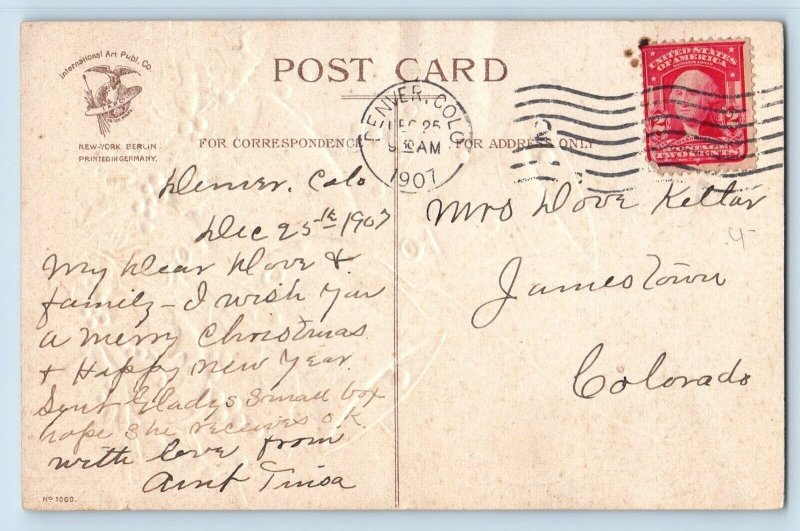 International Art Publ. Co.
NEW-YORK BERLIN
PRINTED IN GERMANY.
POST CARD
FOR CORRESPONDENCE
FOR ADDRESS ONLY
DENVER, COLO.
DEC 25
9 30 AM
1907
UNITED STATES
OF AMERICA
2 2
POSTAGE
TWO CENTS
Denver, Colo
Dec 25th 1907
My Dear Dove &
family - I wish you
a merry Christmas
& Happy New Year
Sent Gladys small box
hope she receives o.k.
with love from
Aunt
Mrs Dove Kellar
Jamestown
Colorado
4
No 1000.